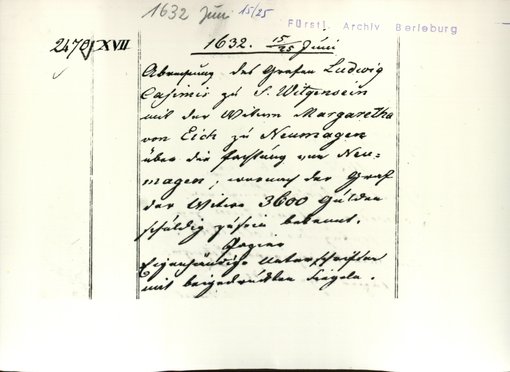 1632 Juni 15/25
Fürstl. Archiv Berleburg
2470f XVII
1632. 15/25 Juni
Abrechnung des Grafen Ludwig
Casimir zu S. Witgenstein
mit der Witwe Margaretha
von Eich zu Neumagen
über die Pachtung von Neu-
magen, wornach der Graf
der Witwe 3600 Gulden
schuldig zu sein bekennt.
Papier
Eigenhändige Unterschriften
mit beigedruckten Siegeln.